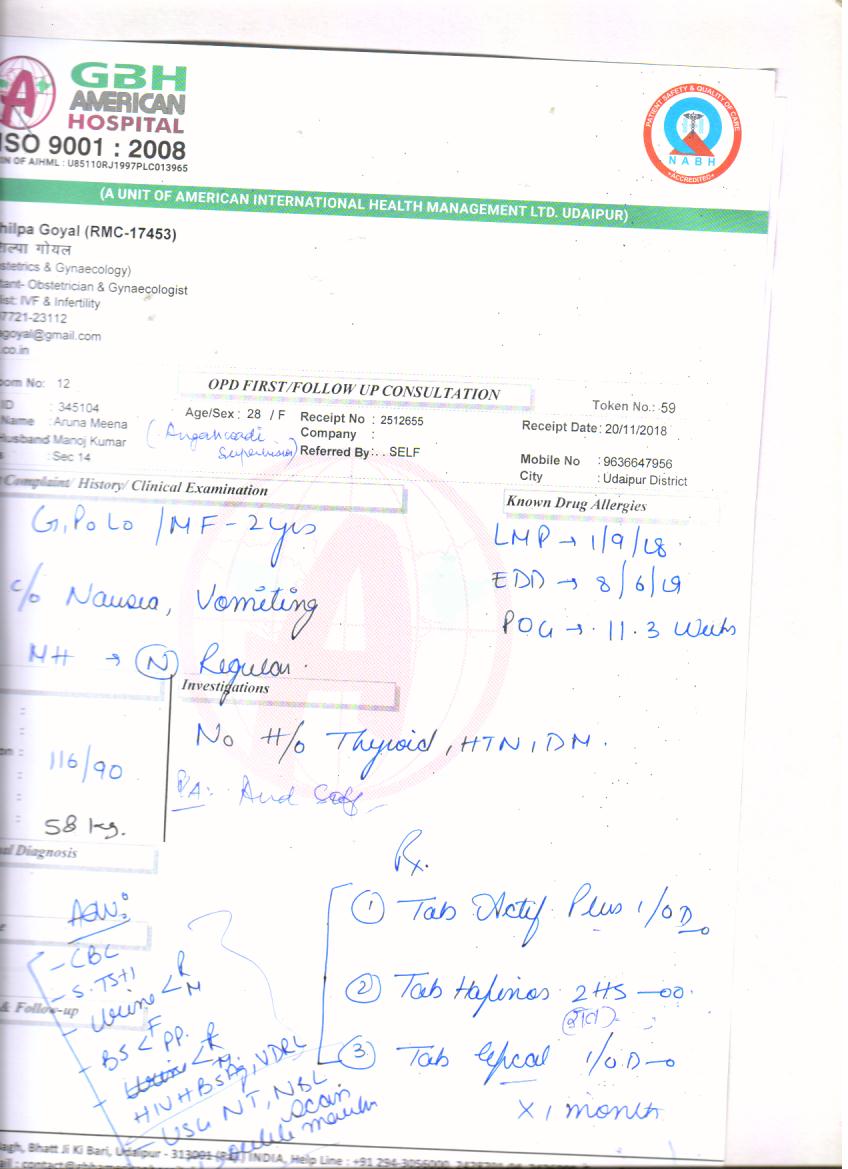 GBH
AMERICAN
HOSPITAL
ISO 9001 : 2008
N OF AIHML : U85110RJ1997PLC013965
PATIENT SAFETY & QUALITY OF CARE
NABH
ACCREDITED
(A UNIT OF AMERICAN INTERNATIONAL HEALTH MANAGEMENT LTD. UDAIPUR)
hilpa Goyal (RMC-17453)
गोयल
stetrics & Gynaecology)
tant- Obstetrician & Gynaecologist
list: IVF & Infertility
7721-23112
agoyal@gmail.com
.co.in
oom No: 12
OPD FIRST/FOLLOW UP CONSULTATION
Token No.: 59
ID : 345104
Age/Sex : 28 / F
Receipt No : 2512655
Receipt Date: 20/11/2018
Name : Aruna Meena
Company :
Husband Manoj Kumar
(Anganwadi Supervisor)
Referred By: . . SELF
Mobile No : 9636647956
s : Sec 14
City : Udaipur District
Complaint/ History/ Clinical Examination
Known Drug Allergies
G1P0L0 / MF - 2 yrs
LMP → 1/9/18
EDD → 8/6/19
c/o Nausea, Vomiting
POG → 11.3 Weeks
MH → (N) Regular
Investigations
No H/o Thyroid, HTN, DM.
116/90
PA:
58 kg.
al Diagnosis
Rx.
① Tab Actif Plus 1/OD
Adv:
- CBC
- S. TSH
② Tab 2HS
- Urine < R M
& Follow-up
- BS < F PP.
③ Tab 1/OD
- HIV HBsAg, VDRL
x 1 month
- USG NT, NBL Scan
agh, Bhatt Ji Ki Bari, Udaipur - 313001 (Raj.) INDIA, Help Line : +91 294-3056000